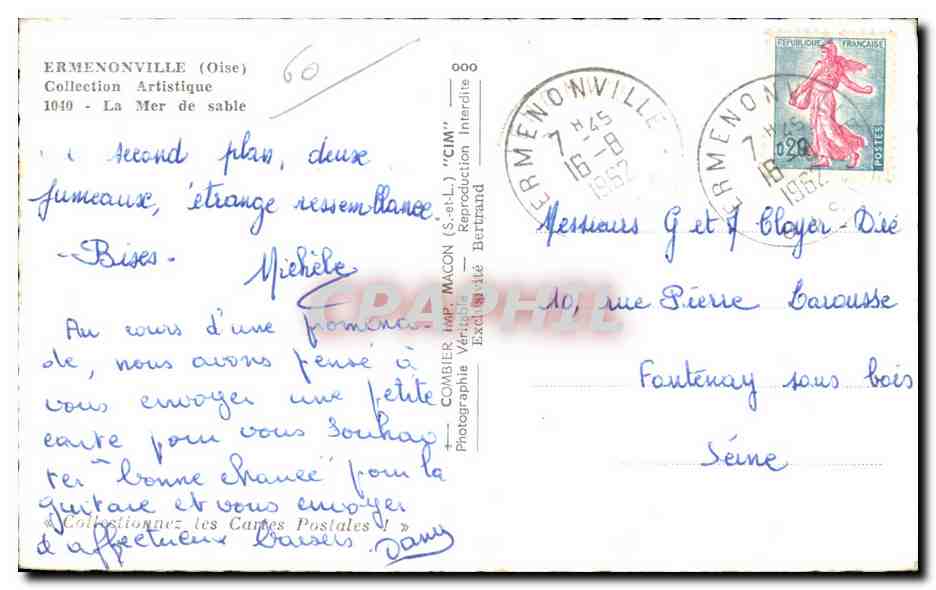 ERMENONVILLE (Oise)
Collection Artistique
1040 - La Mer de sable
60
second plan, deux
jumeaux, étrange ressemblance.
- Bises - Michèle
Au cours d'une promena-
de, nous avons pensé à
vous envoyer une petite
carte pour vous souhai
ter "bonne chance" pour la
guitare et vous envoyer
d'affectueux baisers. Dany
« Collectionnez les Cartes Postales ! »
COMBIER IMP. MACON (S.-et-L.) "CIM"
Photographie Véritable — Reproduction Interdite
Exclusivité Bertrand
000
CPAPHIL
ERMENONVILLE
7 H 45
16 - 8
1962
ERMENONV
7 H 45
16
1962
RÉPUBLIQUE FRANÇAISE
0,20
POSTES
Messieurs G et J Cloyer - Diré
10, rue Pierre Larousse
Fontenay sous bois
Seine